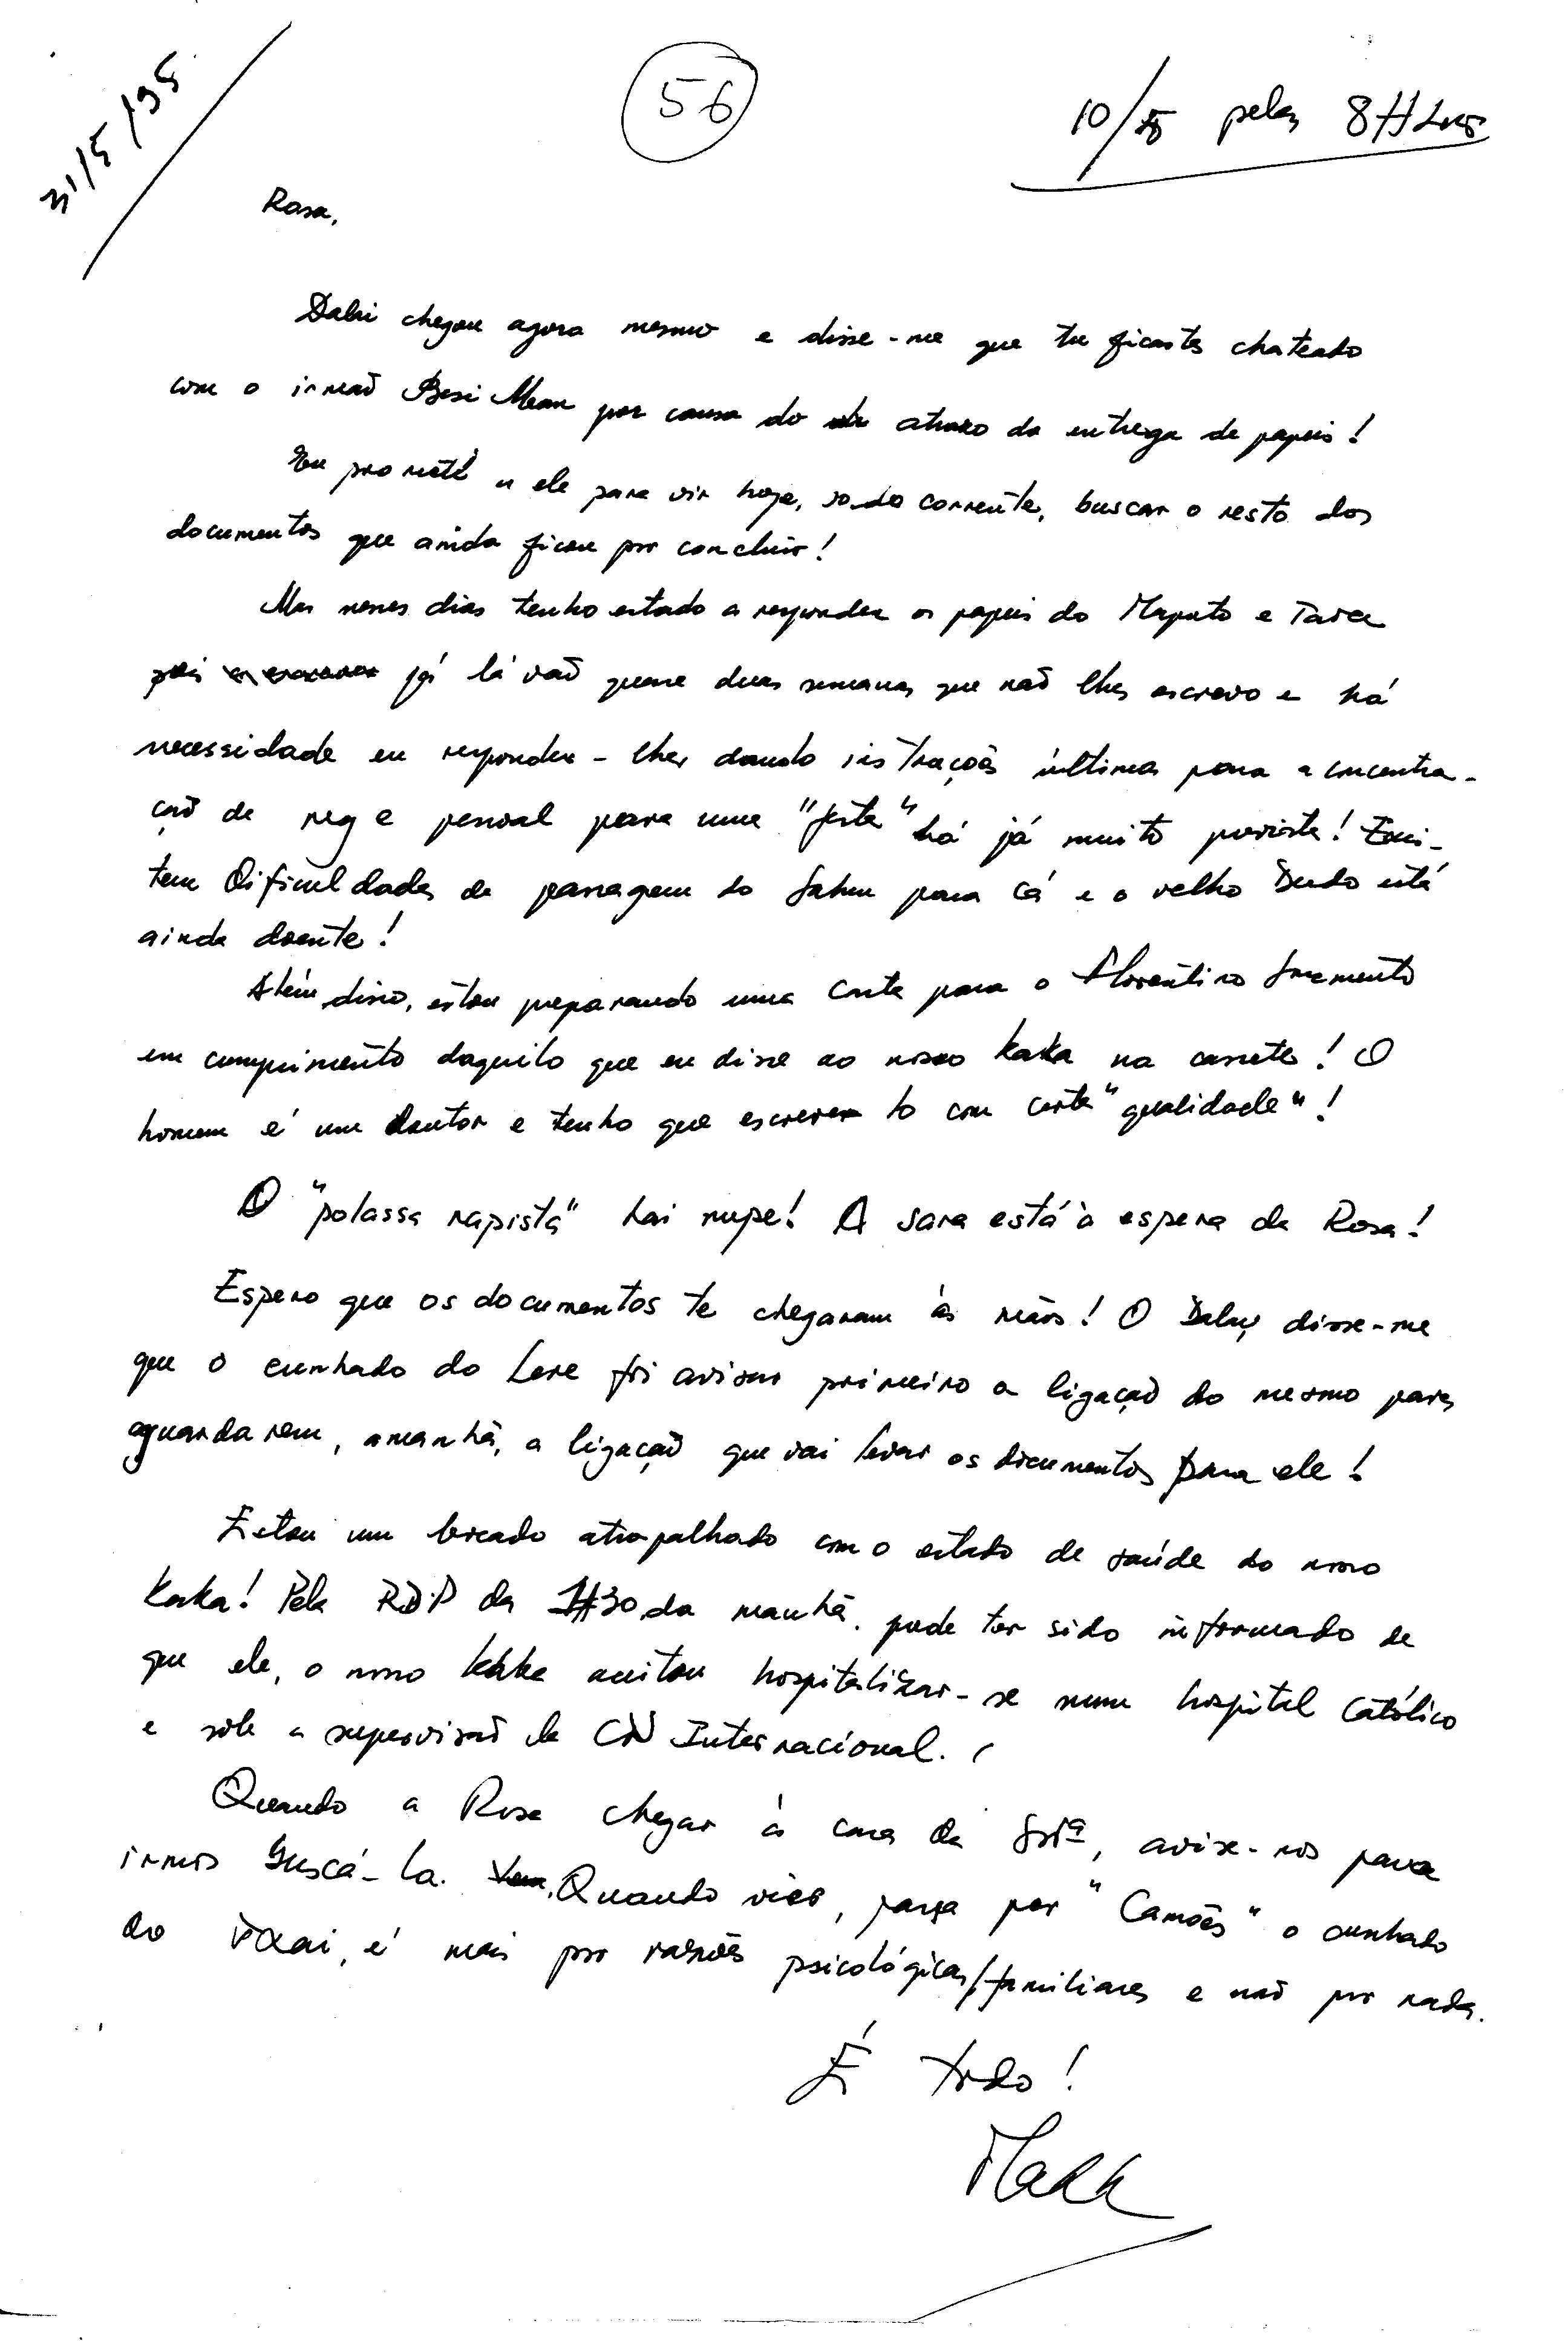 31/5/95
56
10/5 pelas 8H
Rosa,
Dalui chegou agora mesmo e disse-me que tu ficastes chateado
com o irmaõ Besi Mean por causa do atraso da entrega de papeis!
Eu prometí a ele para vir hoje, 10 do corrente, buscar o resto dos
documentos que ainda ficou por concluir!
Mas nesses dias tenho estado a responder os papeis do Maputo e Tara
pois já lá vaõ quase duas semanas que naõ lhes escrevo e há
necessidade eu responder-lhes dando instruçoẽs últimas para a concentra-
çaõ de reg e pessoal para uma "festa" há já muito prevista! Exis-
tem dificuldades de passagem do Sabu para cá e o velho Dudo está
ainda doente!
Além disso, estou preparando uma carta para o Florentino Sarmento
em cumprimento daquilo que eu disse ao nosso Kaka na cassete! O
homem é um doutor e tenho que escrever to com certa "qualidade"!
O "polassa rapista" hai nupe! A Sara está à espera da Rosa!
Espero que os documentos te chegaram às mãos! O disse-me
que o cunhado do Lere foi avisar primeiro a ligaçaõ do mesmo para
aguardarem, amanhã, a ligaçaõ que vai levar os documentos para ele!
Estou um bocado atrapalhado com o estado de saúde do nosso
Kaka! Pela RDP da 1H30 da manhã, pude ter sido informado de
que ele, o nosso Kaka aceitou hospitalizar-se num hospital Católico
e sob a supervisaõ da CV Internacional.
Quando a Rosa chegar à casa da Srtª, avise-nos para
irmos buscá-la. Quando vier, passa por "Camões" o cunhado
do é mais por razoẽs psicológicas/familiares e naõ por nada.
É tudo!